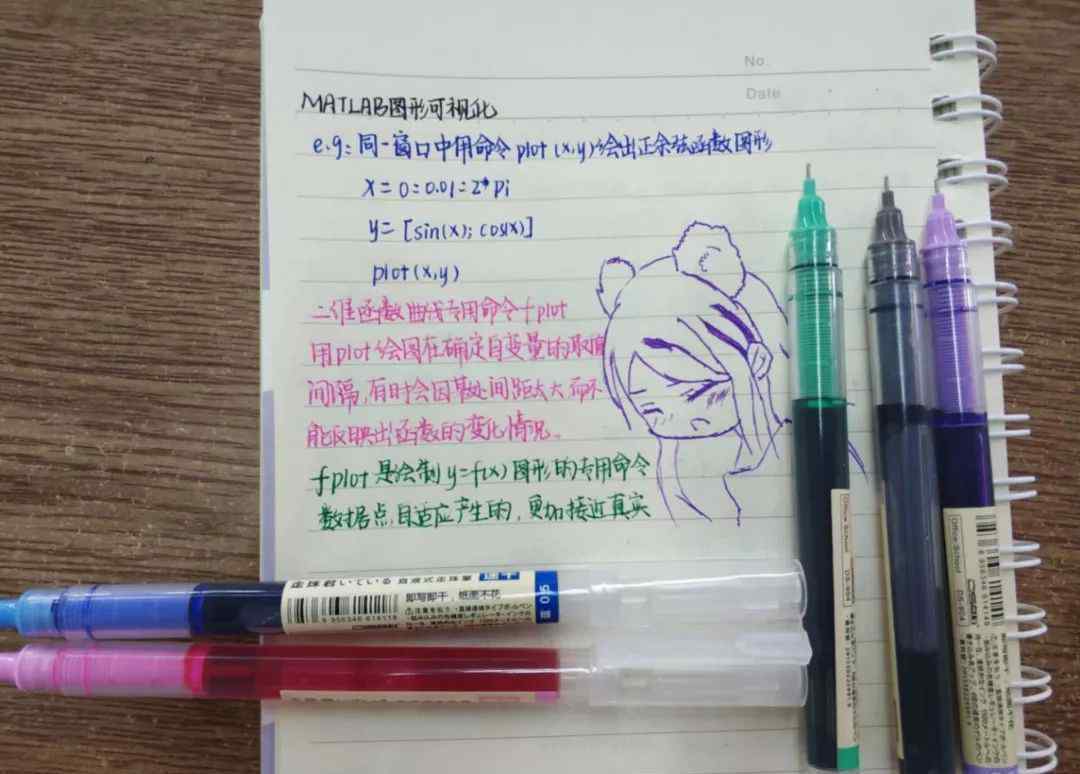 No.
Date
MATLAB图形可视化
e.g: 同一窗口中用命令plot(x,y)绘出正余弦函数图形
x=0:0.01:2*pi
y=[sin(x); cos(x)]
plot(x,y)
二维函数曲线专用命令fplot
用plot绘图在确定自变量的取值
间隔,有时会因某处间距太大而不
能反映出函数的变化情况。
fplot是绘制y=f(x)图形的专用命令
数据点自适应产生的,更加接近真实
走珠書いている 直液式走珠筆 速干
即写即干,纸面不花
蓝 0.5
6 956346 614118
Office·School
DS-904
Office·School
DS-904